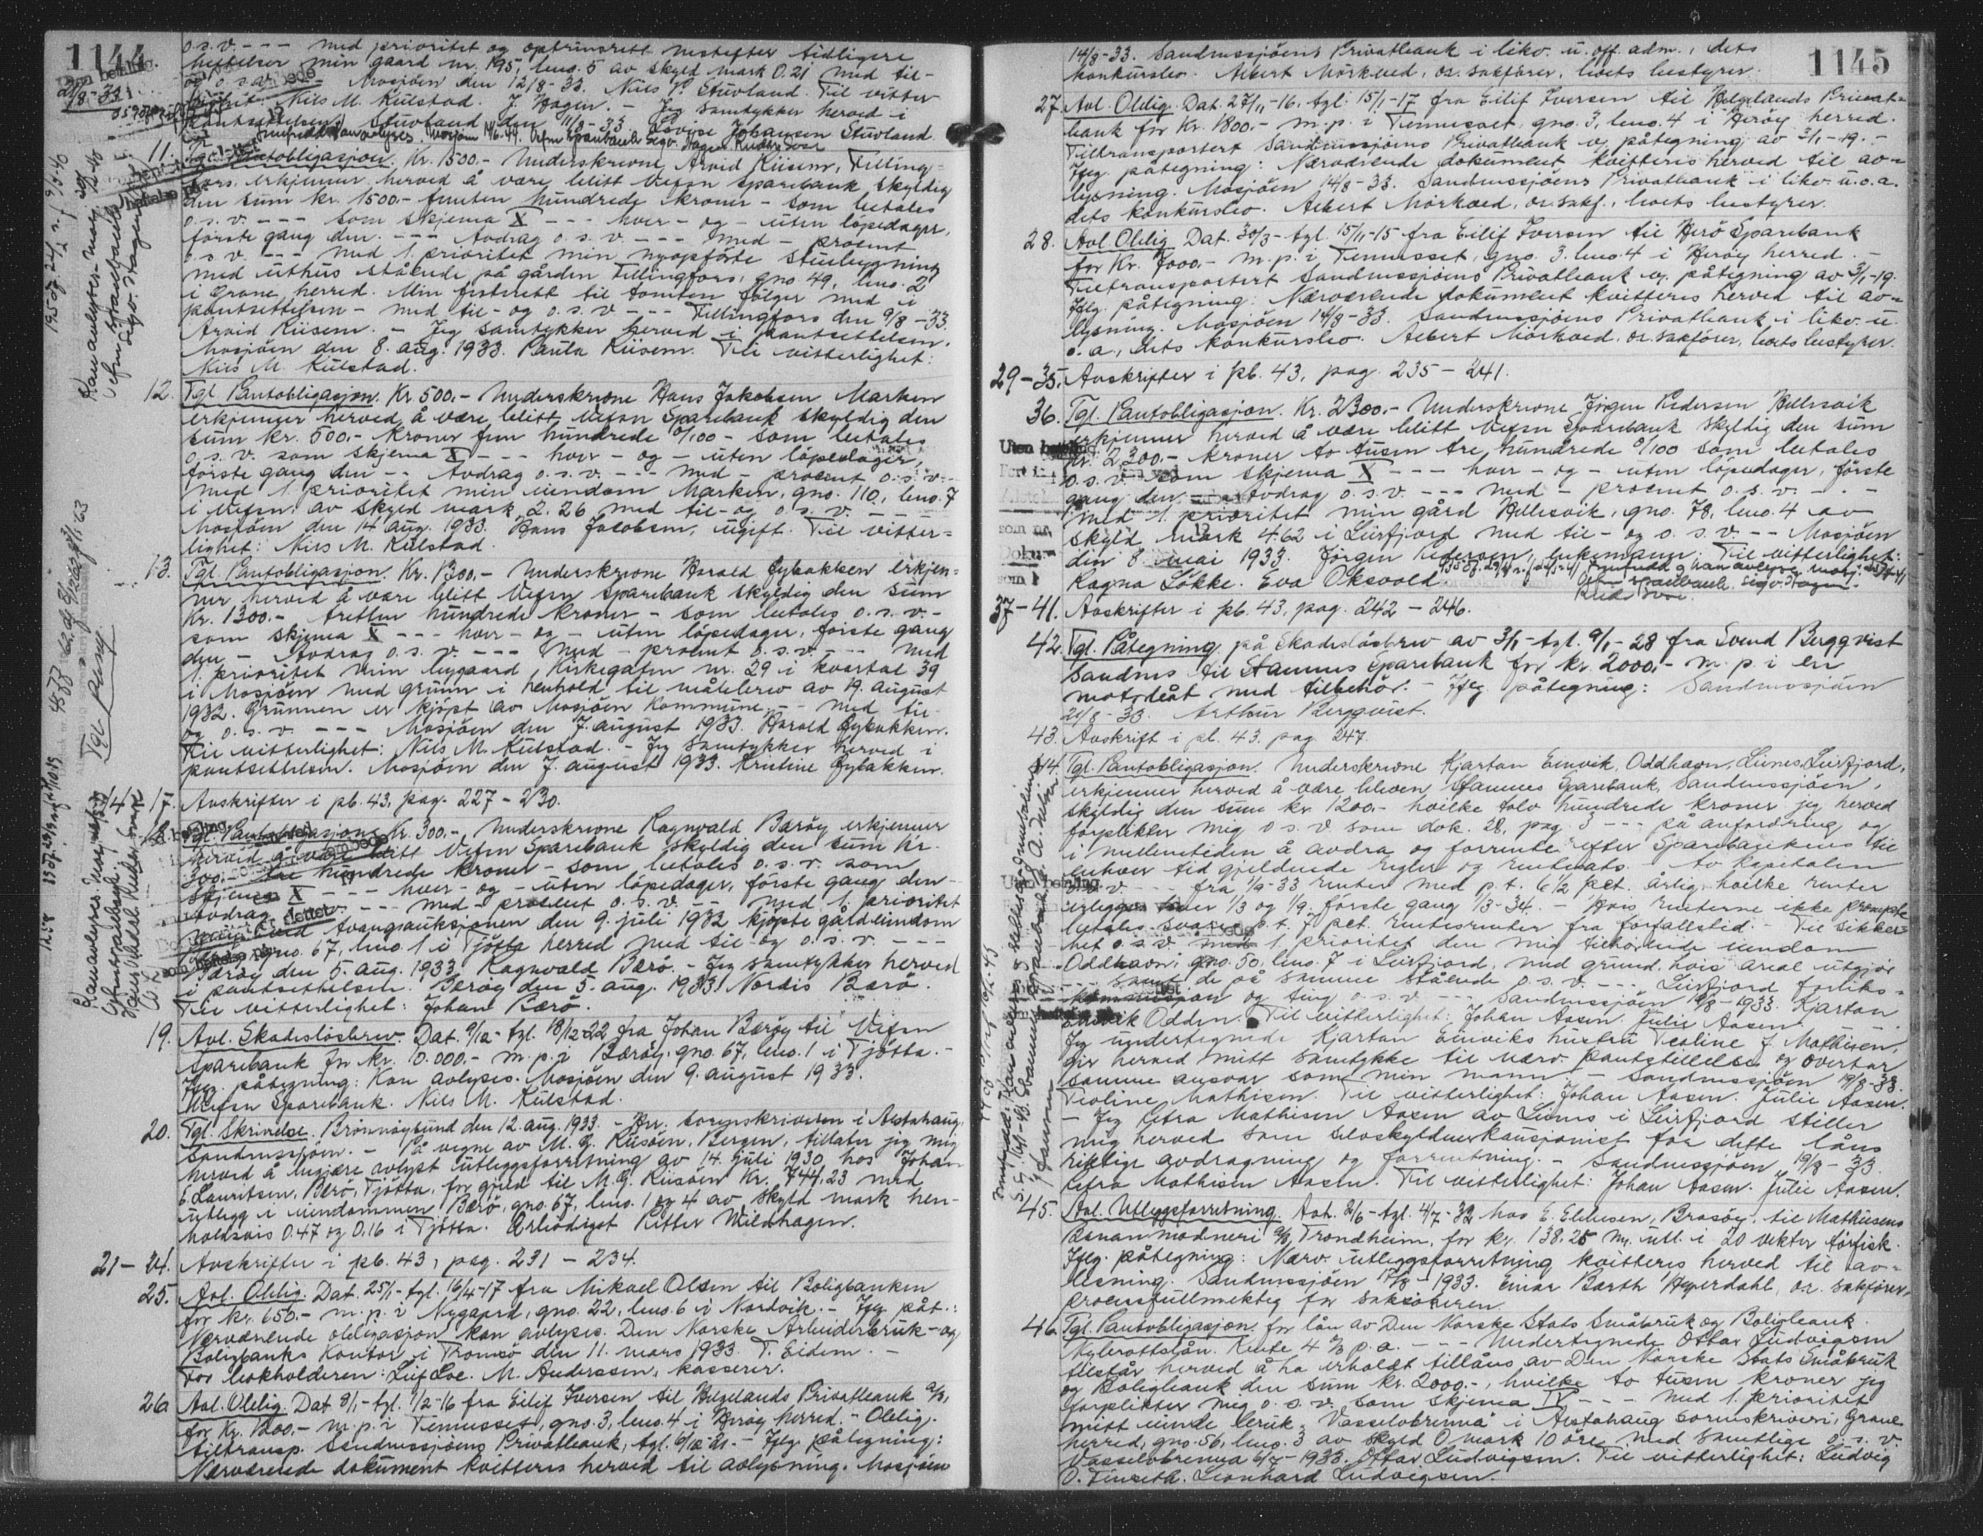 1144
o.s.v. - - - med prioritet og optrinsrett nestefter tidligere
heftelser min gaard nr. 195, bno. 5 av skyld mark 0.21 med til-
og o.s.v. - - - Mosjøen den 12/8-33. Nils P. Stuvland. Til vitter-
lighet: Nils M. Kulstad. J. Hagen. - Jeg samtykker herved i
pantsettelsen. Stuvland den 11/8-33. Lovise Johansen Stuvland.
11. Tgl. Pantobligasjon. Kr. 1500.- Underskrevne Arvid Kiisem, Filling-
fors, erkjenner herved å være blitt Vefsn Sparebank skyldig
den sum kr. 1500.- femten hundrede kroner - som betales
o.s.v. - - - som skjema X - - - hver - og - uten løpedager,
første gang den - - - Avdrag o.s.v. - - - med - procent
o.s.v. - - - med 1. prioritet min nyopførte stuebygning
med uthus stående på gården Fillingfors, gno. 49, bno. 2
i Grane herred. Min festerett til tomten følger med i
pantsettelsen - med til- og o.s.v. - - - Fillingfors den 9/8-33.
Arvid Kiisem. - Jeg samtykker herved i pantsettelsen.
Mosjøen den 8. aug. 1933. Paula Kiisem. Til vitterlighet:
Nils M. Kulstad.
12. Tgl. Pantobligasjon. Kr. 500.- Underskrevne Hans Jakobsen Marken
erkjenner herved å være blitt Vefsn Sparebank skyldig den
sum kr. 500.- kroner fem hundrede 0/100 - som betales
o.s.v. som skjema X - - - hver - og - uten løpedager,
første gang den - - Avdrag o.s.v. - - - med - procent o.s.v. -
med 1. prioritet min eiendom Marken, gno. 110, bno. 7
i Vefsn av skyld mark 2.26 med til- og o.s.v. - - -
Mosjøen den 14 aug. 1933. Hans Jacobsen, ugift. Til vitter-
lighet: Nils M. Kulstad.
13. Tgl. Pantobligasjon. Kr. 1300.- Underskrevne Harald Bybakken erkjen-
ner herved å være blitt Vefsn Sparebank skyldig den sum
kr. 1300.- tretten hundrede kroner - som betales o.s.v. -
som skjema X - - - hver - og - uten løpedager, første gang
den - Avdrag o.s.v. - - - med - procent o.s.v. - - - med
1. prioritet min bygaard, Kirkegaten nr. 29 i kvartal 39
i Mosjøen med grunn i henhold til målebrev av 19. august
1932. Grunnen er kjøpt av Mosjøen Kommune. - - med til-
og o.s.v. - - - Mosjøen den 7. august 1933. Harald Bybakken.
Til vitterlighet: Nils M. Kulstad. - Jeg samtykker herved i
pantsettelsen. Mosjøen den 7. august 1933. Kristine Bybakken.
14 - 17. Avskrifter i pb. 43, pag. 227 - 230.
18. Tgl. Pantobligasjon. Kr. 300.- Underskrevne Ragnvald Bærøy erkjenner
herved å være blitt Vefsn Sparebank skyldig den sum kr.
300.- tre hundrede kroner - som betales o.s.v. som
skjema X - - - hver - og - uten løpedager, første gang den -
Avdrag - - - med - procent o.s.v. - - - med 1. prioritet
min ved tvangsauksjonen den 9. juli 1932 kjøpte gårdeiendom
gno. 67, bno. 1 i Tjøtta herred med til- og o.s.v. - - -
Bærøy den 5. aug. 1933. Ragnvald Bærø. - Jeg samtykker herved
i pantsettelsen. Bærøy den 5. aug. 1933. Nordis Bærø.
Til vitterlighet: Johan Bærø.
19. Avl. Skadesløsbrev. Dat. 9/12 - tgl. 18/12-22 fra Johan Bærøy til Vefsn
Sparebank for kr. 10.000.- m.p. i Bærøy, gno. 67, bno. 1 i Tjøtta. -
Iflg. påtegning: Kan avlyses. Mosjøen den 9. august 1933.
Vefsn Sparebank. Nils M. Kulstad.
20. Tgl. Skrivelse. Brønnøysund den 12. aug. 1933. - Hr. sorenskriveren i Alstahaug,
Sandnessjøen. - På vegne av M. G. Kiisøen, Bergen, tillater jeg mig
herved å begjære avlyst utleggsforretning av 14. juli 1930 hos Johan
E. Lauritsen, Bærø, Tjøtta, for gjeld til M.G. Kiisøen Kr. 744,23 med
utlegg i eiendommen Bærø, gno. 67, bno. 1 og 4 av skyld mark hen-
holdsvis 0.47 og 0.16 i Tjøtta. Ærbødigst Ritter Mildhagen.
21 - 24. Avskrifter i pb. 43, pag. 231 - 234.
25. Avl. Oblig. Dat. 25/1 - tgl. 16/4-17 fra Mikael Olsen til Boligbanken
for kr. 650.- m.p. i Nygaard, gno. 22, bno. 6 i Nordvik. - Iflg. påt.:
Nærværende obligasjon kan avlyses. Den Norske Arbeiderbruk- og
Boligbanks Kontor i Tromsø den 11. mars 1933. T. Eidem. -
For bokholderen: Leif Loe. M. Anderssen, kasserer.
26. Avl. Oblig. Dat. 8/1 - tgl. 1/2-16 fra Eilif Iversen til Helgelands Privatbank A/S,
for kr. 1200.- m.p. i Tennesset, gno. 3, bno. 4 i Herøy herred. - Oblig.
tiltransp. Sandnessjøens Privatbank, tgl. 6/12-21. - Iflg. påtegning:
Nærværende dokument kvitteres herved til avlysning. Mosjøen
1145
14/8-33. Sandnessjøens Privatbank i likv. u. off. adm., dets
konkursbo. Albert Mörkved, o.r. sakfører, boets bestyrer.
27. Avl. Oblig. Dat. 27/11-16, tgl. 15/1-17 fra Eilif Iversen til Helgelands Privat-
bank for kr. 1800.- m.p. i Tennesset, gno. 3, bno. 4 i Herøy herred.
Tiltransportert Sandnessjøens Privatbank ved påtegning av 3/1-19. -
Iflg. påtegning: Nærværende dokument kvitteres herved til av-
lysning. Mosjøen 14/8-33. Sandnessjøens Privatbank i likv. u.o.a.
dets konkursbo. Albert Mörkved, o.r. sakf., boets bestyrer.
28. Avl. Oblig. Dat. 30/3 - tgl. 15/11-15 fra Eilif Iversen til Herø Sparebank
for kr. 1000.- m.p. i Tennesset, gno. 3, bno. 4 i Herøy herred. -
Tiltransportert Sandnessjøens Privatbank ved påtegning av 3/1-19.
Iflg. påtegning: Nærværende dokument kvitteres herved til av-
lysning. Mosjøen 14/8-33. Sandnessjøens Privatbank i likv. u.
o.a., dets konkursbo. Albert Mörkved, o.r. sakfører, boets bestyrer.
29 - 35. Avskrifter i pb. 43, pag. 235 - 241.
36. Tgl. Pantobligasjon. Kr. 2300.- Underskrevne Jørgen Pedersen Hellesvik
erkjenner herved å være blitt Vefsn Sparebank skyldig den sum
kr. 2300.- kroner to tusen tre hundrede 0/100 som betales
o.s.v. som skjema X - - - hver - og - uten løpedager, første
gang den - - - Avdrag o.s.v. - - - med - procent o.s.v. - - -
med 1. prioritet min gård Hellesvik, gno. 78, bno. 4 av
skyld mark 4.62 i Leirfjord med til- og o.s.v. - - Mosjøen
den 8. mai 1933. Jørgen Pedersen, enkemann. Til vitterlighet:
Ragna Løkke. Eva Oksvold.
37 - 41. Avskrifter i pb. 43, pag. 242 - 246.
42. Tgl. Påtegning på Skadesløsbrev av 3/1 - tgl. 9/1-28 fra Svend Bergqvist
Sandnes til Stamnes Sparebank for kr. 2000.- m.p. i en
motorbåt med tilbehør. - Iflg. påtegning: Sandnessjøen
21/8-33. Arthur Bergqvist.
43. Avskrift i pb. 43, pag. 247.
44. Tgl. Pantobligasjon. Underskrevne Kjartan Einvik, Oddhavn, Leines, Leirfjord,
erkjenner herved å være bleven Stamnes Sparebank, Sandnessjøen,
skyldig den sum kr. 1200.- hvilke tolv hundrede kroner jeg herved
forplikter mig o.s.v. som dok. 28, pag. 3 - - - på anfordring og
i mellemtiden å avdra og forrente efter Sparebankens til
enhver tid gjeldende regler og rentesats. - Av kapitalen
o.s.v. - - - fra 1/9-33 renter med p.t. 6 1/2 pct. årlig, hvilke renter
erlegges hver 1/3 og 1/9, første gang 1/3-34. - Hvis renterne ikke prompte
betales svares p.t. 7 pct. rentesrenter fra forfallstid. - Til sikker-
het o.s.v. med 1. prioritet den mig tilhørende eiendom
Oddhavn, gno. 50, bno. 7 i Leirfjord, med grund, hvis areal utgjør
- - - samt de på samme stående o.s.v. - - - Leirfjord forliks-
kommisjon og ting o.s.v. - - - Sandnessjøen 19/8-1933. Kjartan
Einvik Odden. Til vitterlighet: Johan Aasen. Julie Aasen.
Jeg undertegnede Kjartan Einviks hustru Teoline J. Mathisen,
gir herved mitt samtykke til nærv. pantstillelse og overtar
samme ansvar som min mann. - Sandnessjøen 19/8-33.
Teoline Mathisen. Til vitterlighet: Johan Aasen. Julie Aasen.
- Jeg Petra Mathisen Aasen av Leines i Leirfjord stiller
mig herved som selvskyldnerkausjonist for dette låns
riktige avdragning og forrentning. - Sandnessjøen 19/8-33.
Petra Mathisen Aasen. Til vitterlighet: Johan Aasen. Julie Aasen.
45. Avl. Utleggsforretning. Avh. 2/6 - tgl. 4/7-32 hos E. Ebbesen, Brasøy, til Mathiesens
Bananmodneri A/S, Trondheim, for kr. 138.25 m. utl. i 20 vekter tørrfisk.
Iflg. påtegning: Nærv. utleggsforretning kvitteres herved til av-
lesning. Sandnessjøen 17/8-1933. Einar Barth Heyerdahl, o.r. sakfører,
procesfullmektig for saksøkeren.
46. Tgl. Pantobligasjon for lån av Den Norske Stats Småbruk og Boligbank.
Nylerottslån. Rente 4 % p.a. - - - Undertegnede Ottar Ludvigsen
tilstår herved å ha erholdt tillåns av Den Norske Stats Småbruk
og Boligbank den sum kr. 2000.-, hvilke to tusen kroner jeg
forplikter mig o.s.v. som skjema IV - - - med 1. prioritet
mitt eiende bruk Vasselvbrenna i Alstahaug sorenskriveri, Grane
herred, gno. 56, bno. 3 av skyld 0 mark 10 øre med samtlige o.s.v.
Vasselvbrenna 6/7-1933. Ottar Ludvigsen. Til vitterlighet: Ludvig
O. Finseth. Leonhard Ludvigsen.